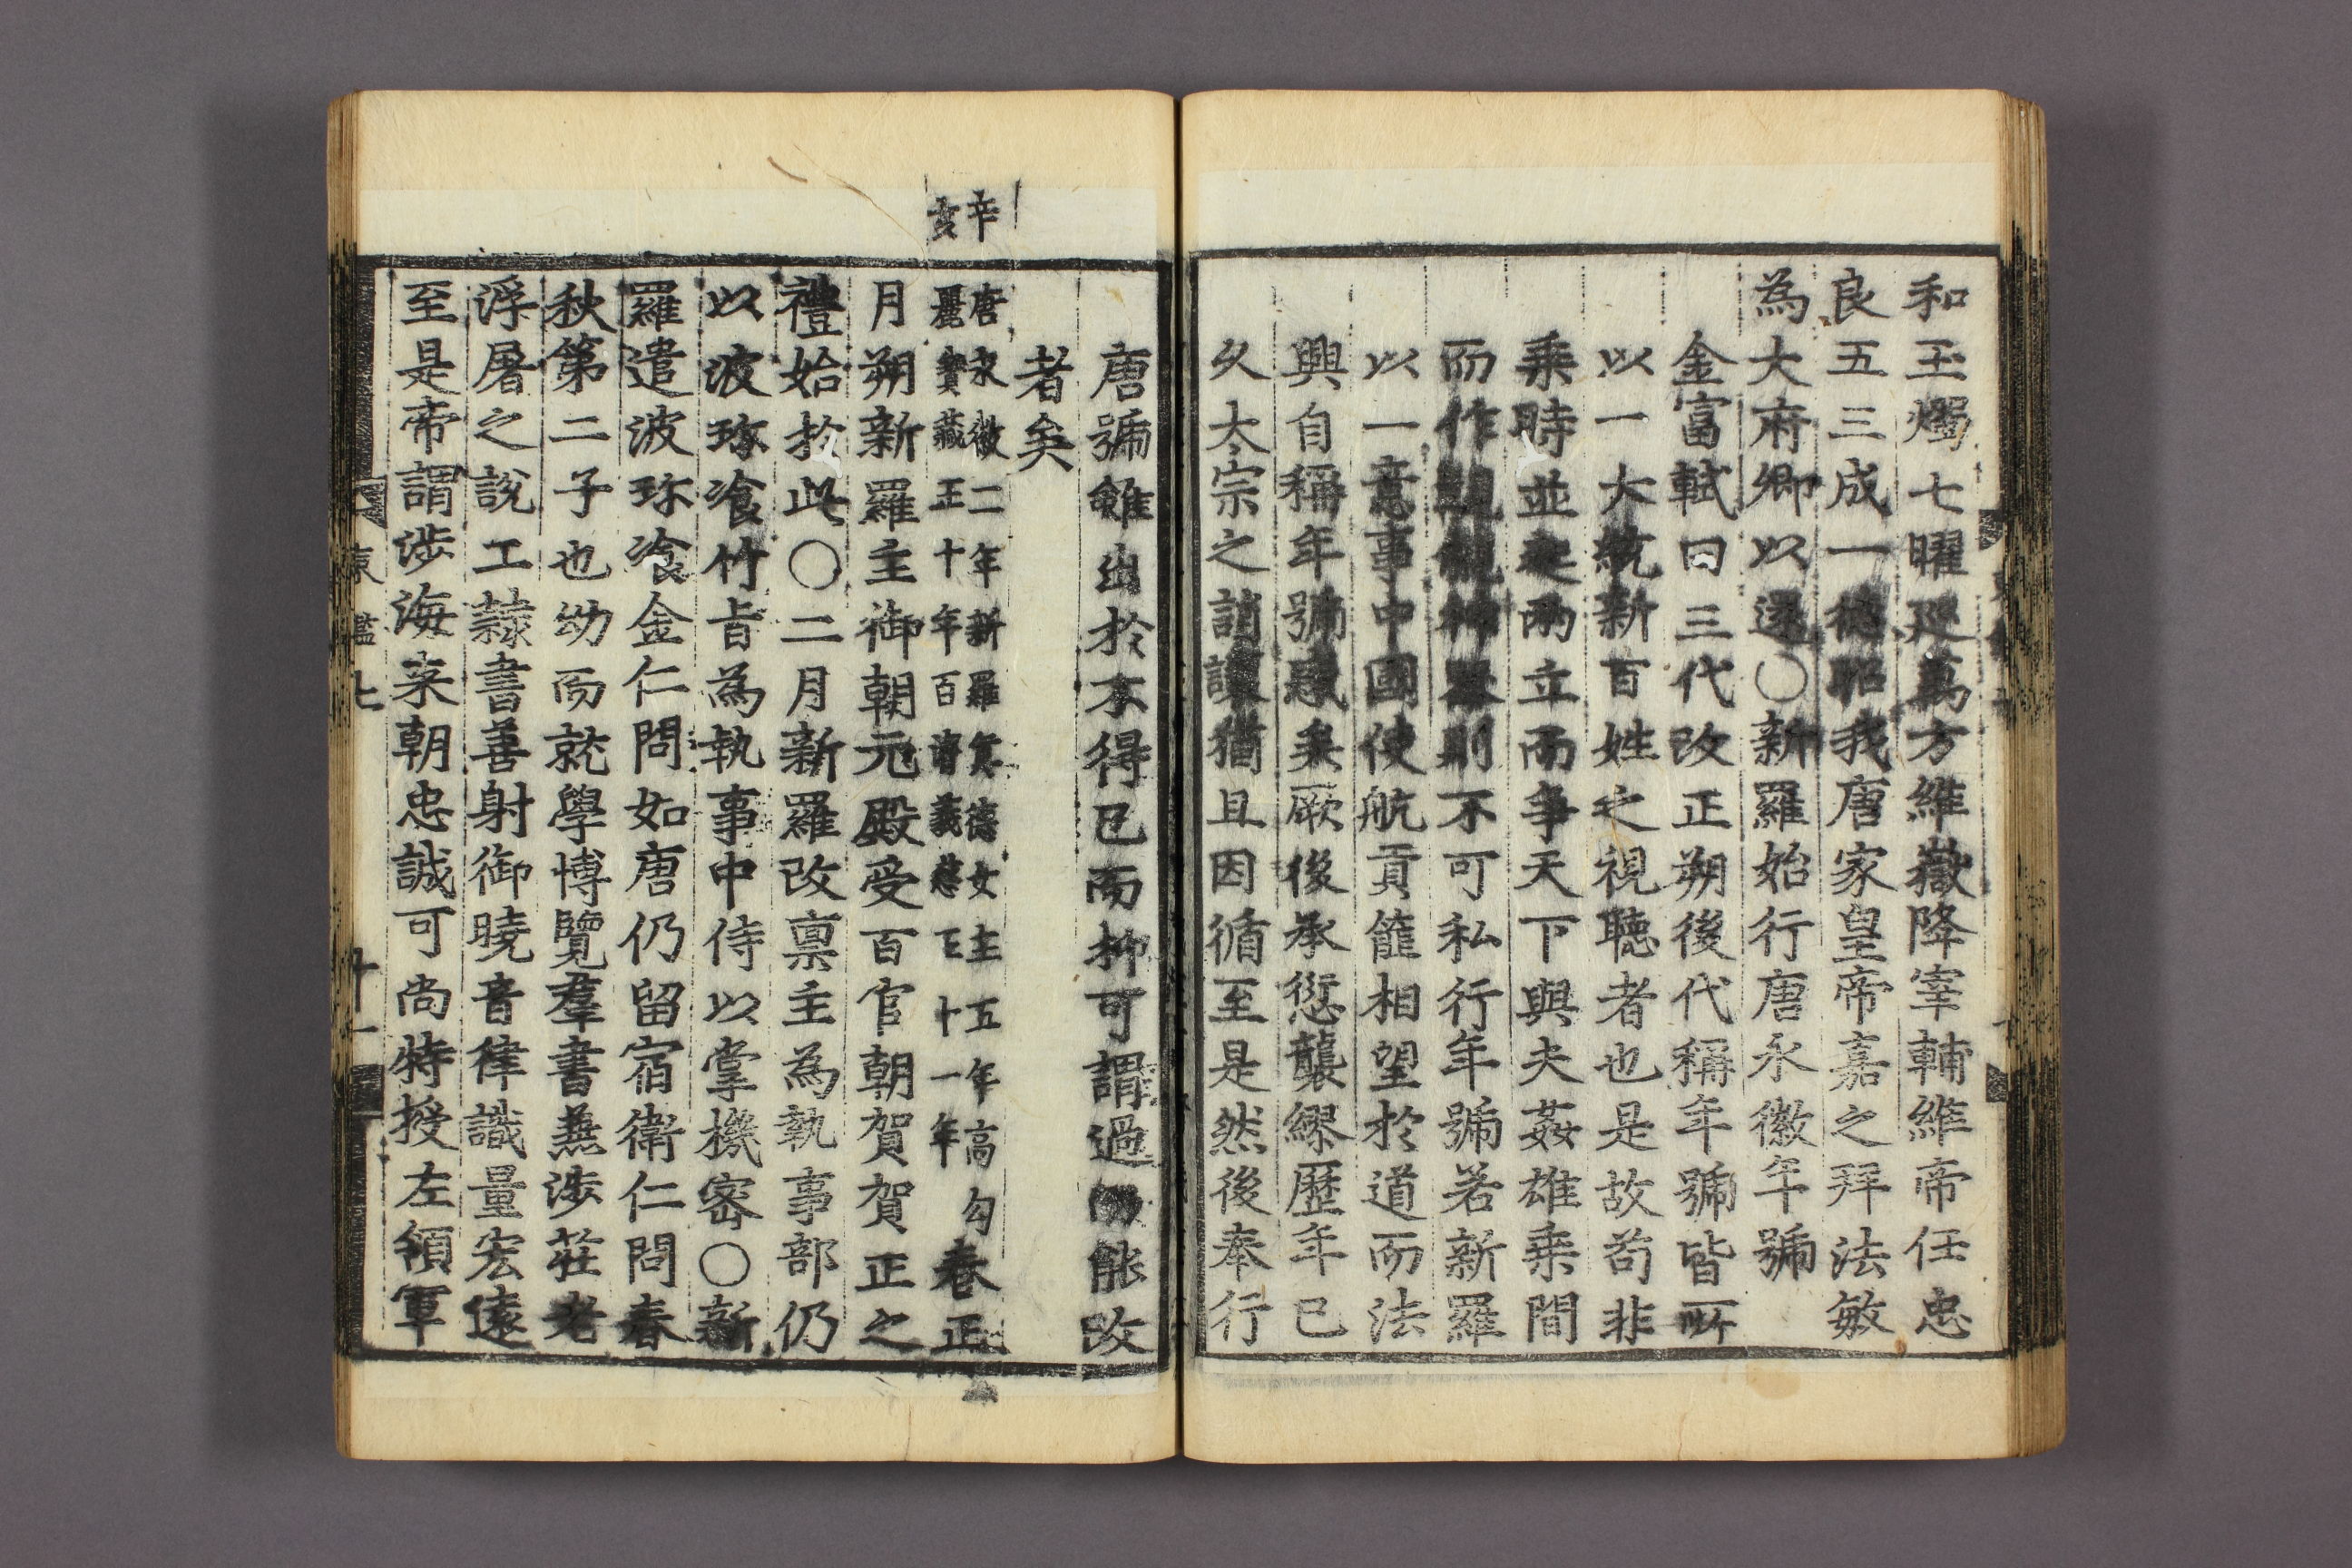 和玉燭七曜巡萬方維嶽降宰輔維帝任忠
良五三成一德昭我唐家皇帝嘉之拜法敏
為大府卿以還〇新羅始行唐永徽年號
金富軾曰三代改正朔後代稱年號皆所
以一大統新百姓之視聽者也是故苟非
乘時並起兩立而爭天下與夫姦雄乘間
而作覬覦神器則不可私行年號若新羅
以一意事中國使航貢篚相望於道而法
興自稱年號惑矣厥後承愆襲繆歷年已
久太宗之誚讓猶且因循至是然後奉行
唐號雖出於不得已而抑可謂過而能改
者矣
辛亥
唐永徽二年新羅真德女主五年高勾
麗寶藏王十年百濟義慈王十一年
春正
月朔新羅主御朝元殿受百官朝賀賀正之
禮始於此〇二月新羅改禀主為執事部仍
以波珎飡竹旨為執事中侍以掌機密〇新
羅遣波珎飡金仁問如唐仍留宿衛仁問春
秋第二子也幼而就學博覽羣書兼涉莊老
浮屠之說工隷書善射御曉音律識量宏遠
至是帝謂涉海来朝忠誠可尚特授左領軍
東鑑七
十一